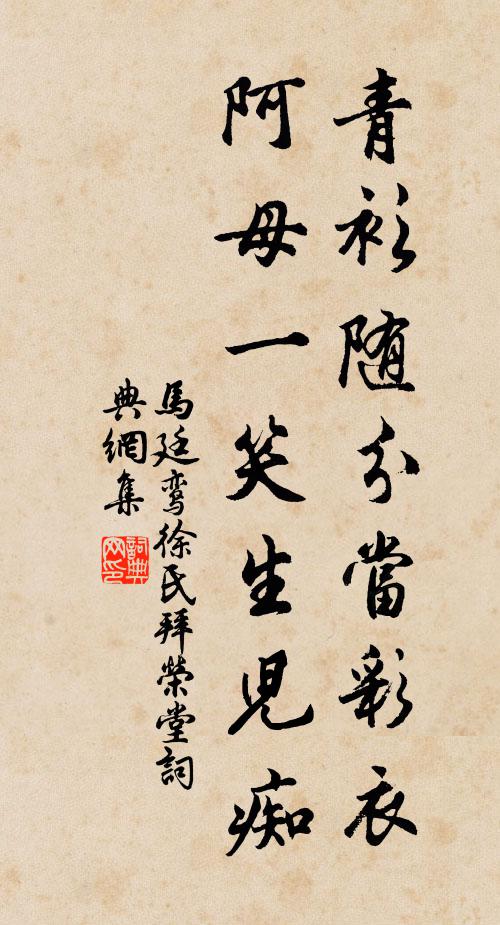 青衫随分當彩衣
阿母一笑生児痴
馬廷鸾徐氏拜榮堂詞
典網集
詞典
网印